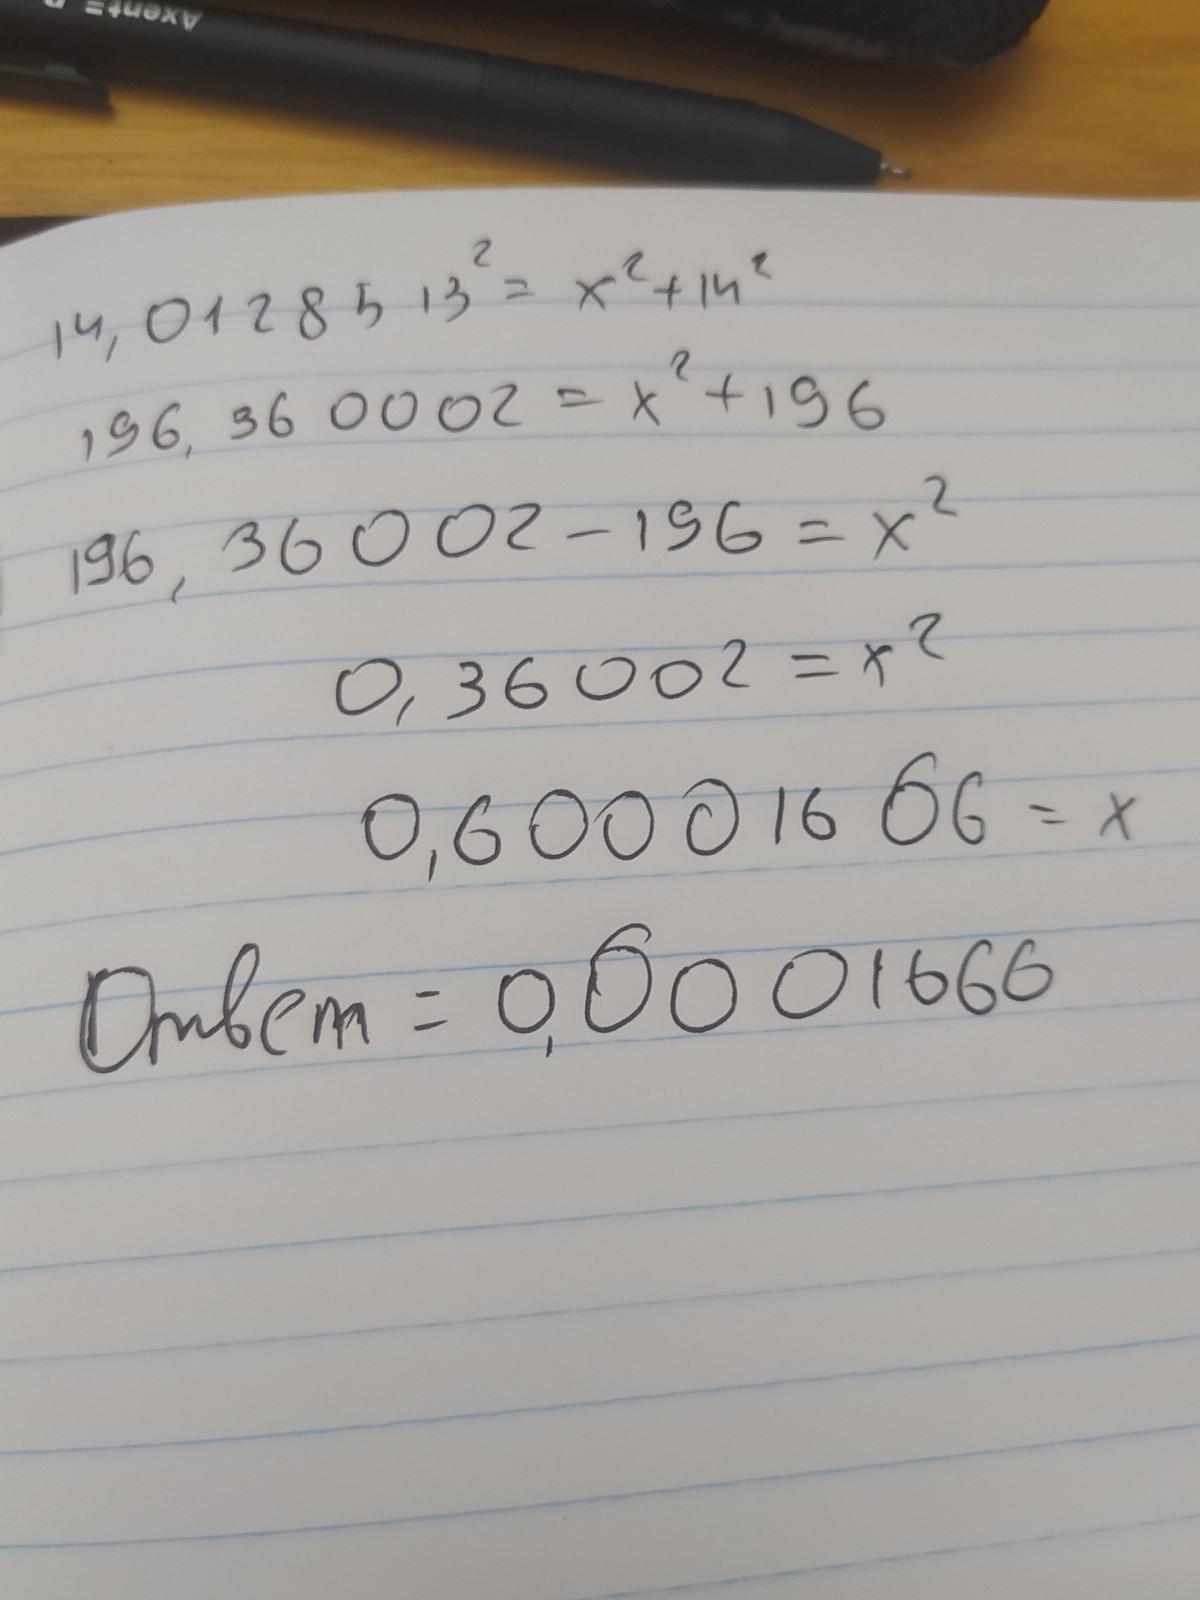 Axent
14,01285 13² = x² + 14²
196,360002 = x² + 196
196,36002 - 196 = x²
0,36002 = x²
0,60001666 = x
Ответ = 0,60001666